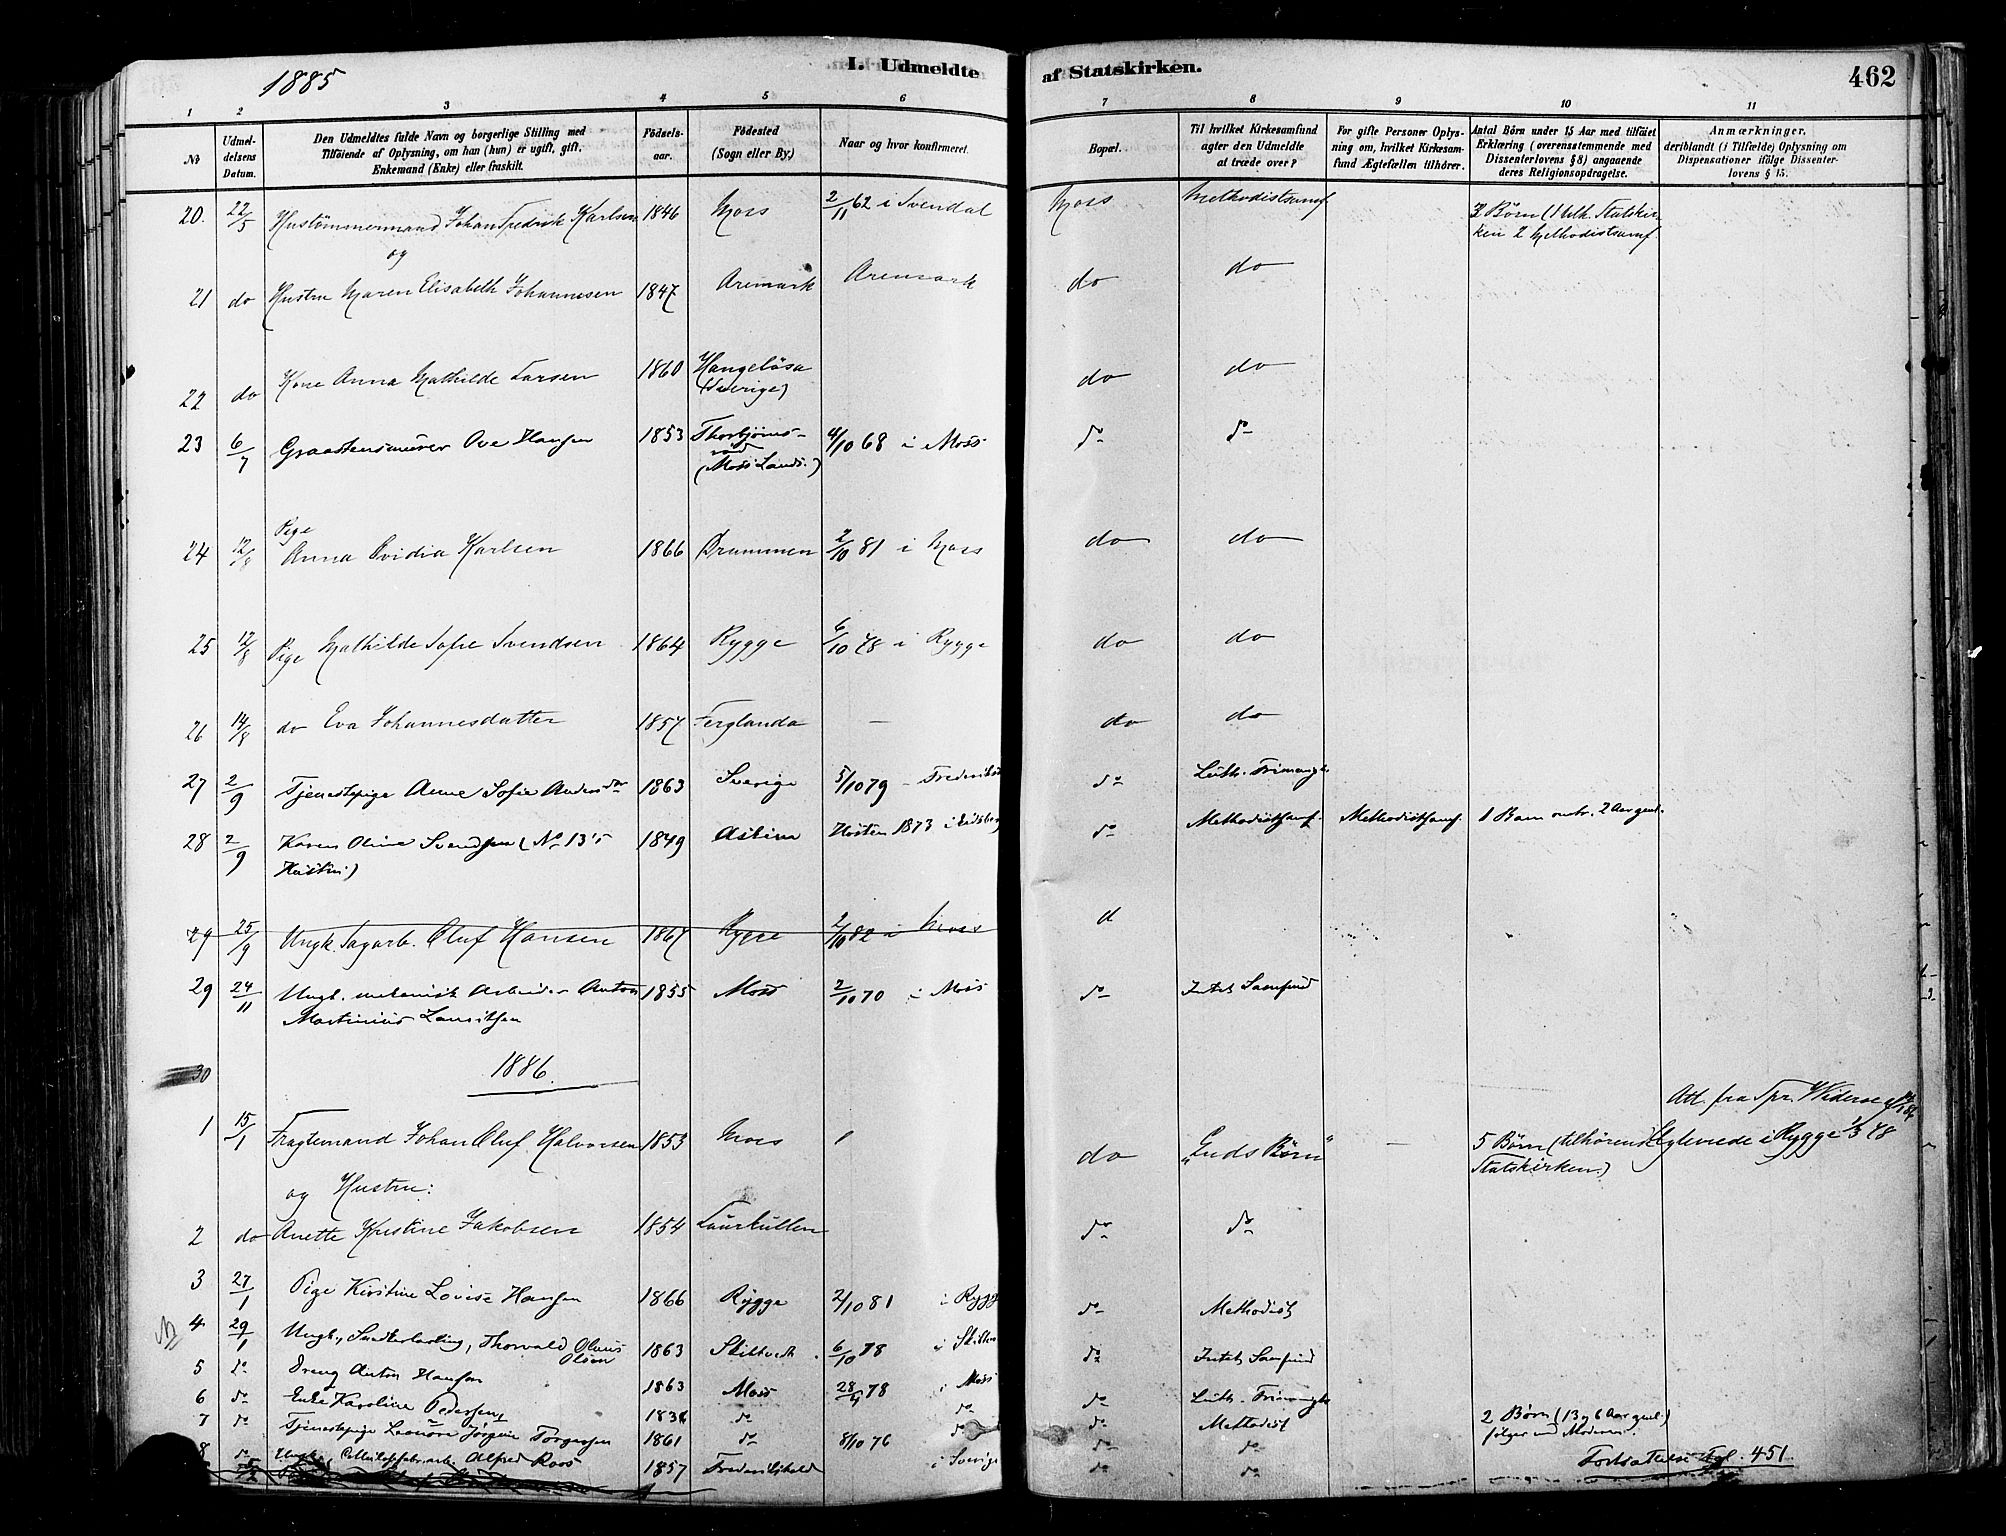 1885
I. Udmeldte af Statskirken.
462
1 2 3 4 5 6 7 8 9 10 11
№
Udmel-
delsens
Datum.
Den Udmeldtes fulde Navn og borgerlige Stilling med
Tilføiende af Oplysning, om han (hun) er ugift, gift,
Enkemand (Enke) eller fraskilt.
Fødsels-
aar.
Fødested
(Sogn eller By.)
Naar og hvor konfirmeret.
Bopæl.
Til hvilket Kirkesamfund
agter den Udmeldte
at træde over?
For gifte Personer Oplys-
ning om, hvilket Kirkesam-
fund Ægtefællen tilhører.
Antal Børn under 15 Aar med tilføiet
Erklæring (overensstemmende med
Dissenterloven § 8) angaaende
deres Religionsopdragelse.
Anmærkninger,
deriblandt (i Tilfælde) Oplysning om
Dispensationer ifølge Dissenter-
lovens § 15.
20. 22/5 Hustømmermand Johan Fredrik Karlsen 1846 Moss 2/11 62 i Svendal Moss Methodistsamf 3 Børn (1 tilh. Statskir-
ken 2 Methodistsamf.
og
21 do Hustru Maren Elisabeth Johannesen 1847 Aremark Aremark do do
22 do Kone Anna Mathilde Larsen 1860 Hangelösa
(Sverige) do do
23 6/7 Graastensmurer Ove Hansen 1853 Thorbjørns-
rød
(Moss Lands.) 4/10 68 i Moss do do
Pige
24 12/8 Anna Ovidia Karlsen 1866 Drammen 2/10 81 i Moss do do
25 12/8 Pige Mathilde Sofie Svendsen 1864 Rygge 6/10 78 i Rygge do do
26 14/8 do Eva Johannesdatter 1857 Ferglanda — do do
27 2/9 Tjenestepige Anne Sofie Andersdtr 1863 Sverige 5/10 79 do Luth. Frimenigh
28 2/9 Karen Oline Svendsen (No 13's
Hustru) 1849 Askim Høsten 1873 i Eidsberg do Methodistsamf. Methodistsamf. 1 Barn 2 Aar gml.
29 25/9 Ungk. Sagarb. Oluf Hansen 1867 Rygge 2/10 82 i Moss d
29 24/11 Ungk. mekanisk Arbeider Anton
Martinius Lauritsen 1855 Moss 2/10 70 i Moss do Intet Samfund
30 1886.
Att. fra Spr. Widerøe
1 15/1 Fragtemand Johan Oluf Halvorsen 1853 Moss 1 do "Guds Børn" — 5 Børn (tilhørende
Statskirken.) Ægteviede i Rygge 1/3 78
og Hustru:
2 do Anette Kristine Jakobsen 1854 Laurkullen do do
3 27/1 Pige Kirstine Lovise Hansen 1866 Rygge 2/10 81 i Rygge do Methodist
4 29/1 Ungk., Thorvald Olaus
Olsen 1863 Skiltvedt 6/10 78 i Skiltv do Intet Samfund
5 do Dreng Anton Hansen 1863 Moss 28/4 78 i Moss do Luth. Frimenigh
6 do Enke Karoline Pedersen 1836 do do do Methodist 2 Børn (13 og 6 Aar gml.)
følger med Moderen.
7 do Tjenestepige Leonore Jørgine Torgersen 1861 do 8/10 76 do do do
8 do Ungk. Alfred Roos 1857 Frederikshald i Sverige do do
Fortsættelse Fol. 451.